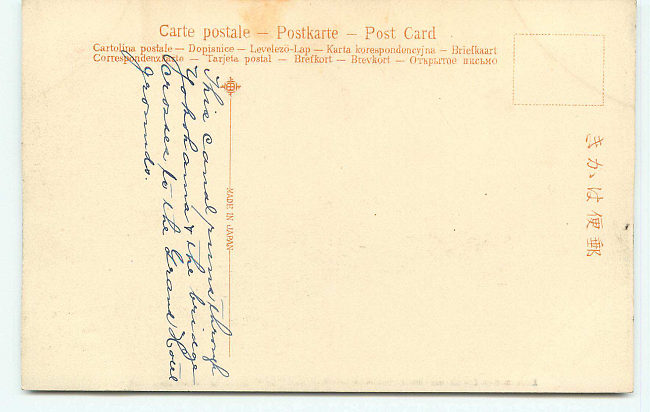 Carte postale — Postkarte — Post Card
Cartolina postale — Dopisnice — Levelezö-Lap — Karta korespondencyjna — Briefkaart
Correspondenzkarte — Tarjeta postal — Brefkort — Brevkort — Открытое письмо
This canal runs through
Yokohama & the bridge
crosses to the Grand Hotel
grounds.
MADE IN JAPAN
きかは便郵